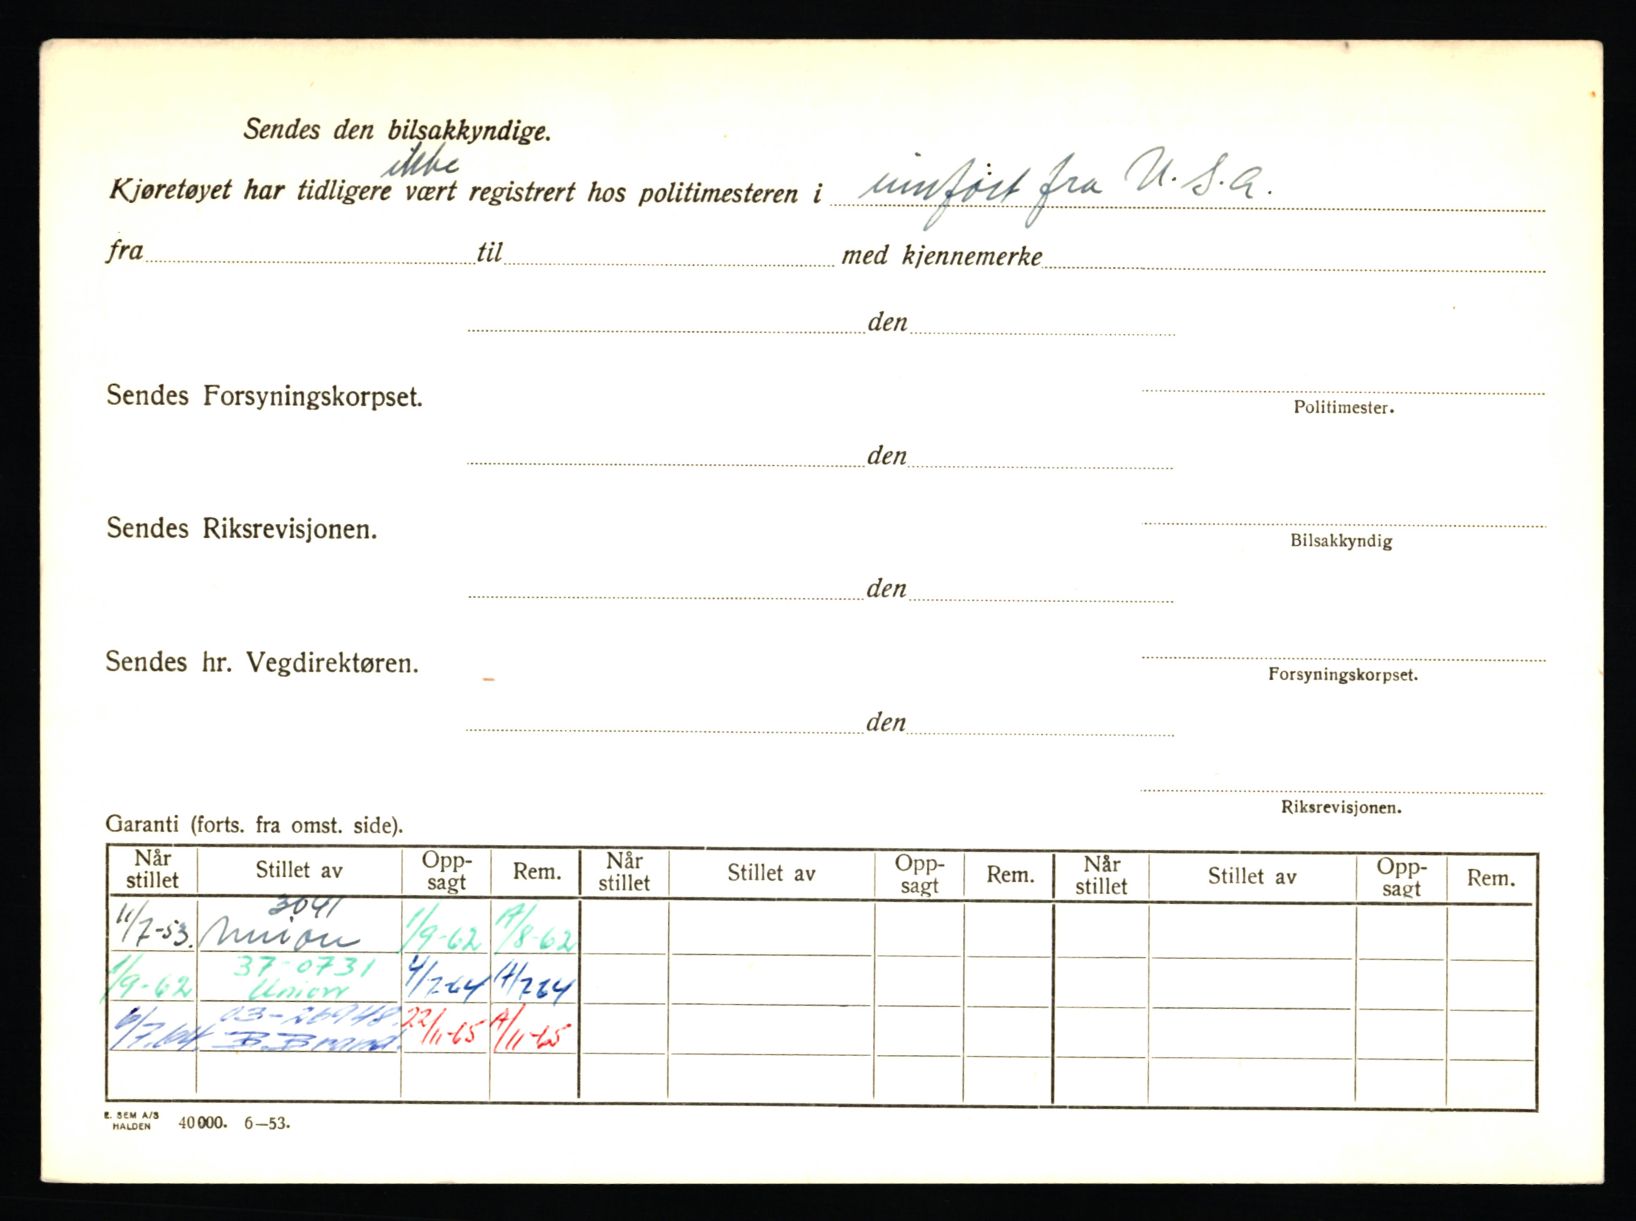 Sendes den bilsakkyndige.
ikke
Kjøretøyet har tidligere vært registrert hos politimesteren i innført fra U.S.A.
fra til med kjennemerke
den
Sendes Forsyningskorpset.
Politimester.
den
Sendes Riksrevisjonen.
Bilsakkyndig
den
Sendes hr. Vegdirektøren.
Forsyningskorpset.
den
Riksrevisjonen.
Garanti (forts. fra omst. side).
Når stillet Stillet av Opp-sagt Rem. Når stillet Stillet av Opp-sagt Rem. Når stillet Stillet av Opp-sagt Rem.
3041
11/7-53. Union 1/9-62 A/8-62
37-0731
1/9-62 Union 4/7-64 A/7-64
03-26948.
6/7.64. B.Brand. 22/11-65 A/11-65
E. SEM A/S
HALDEN 40000. 6—53.